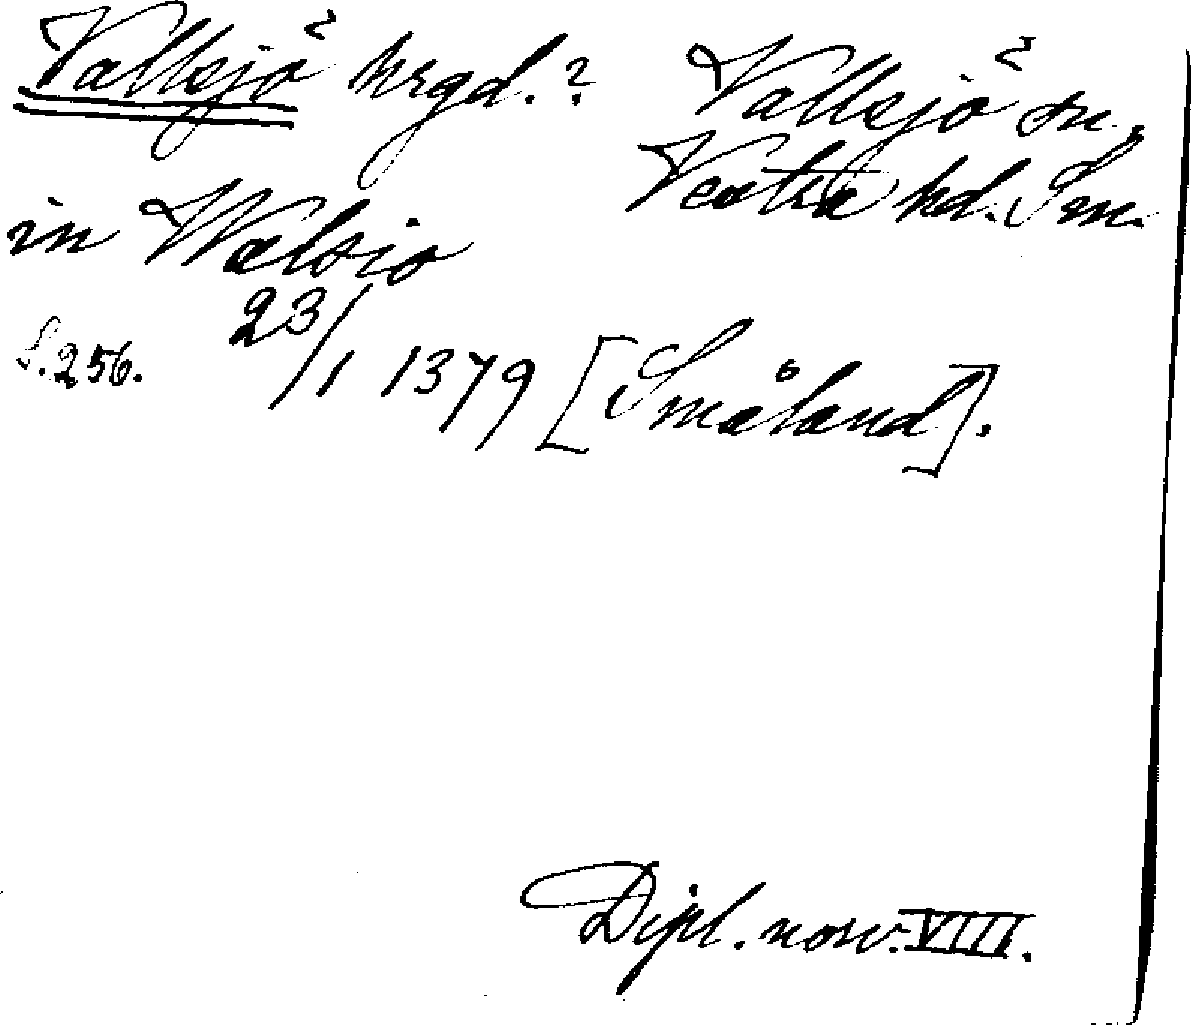 Vallsjö hrgd.?
Vallsjö sn,
Västra hd. Sm.
in Wælsio
S. 256.
23/1 1379 [Småland].
Dipl. norv. VIII.